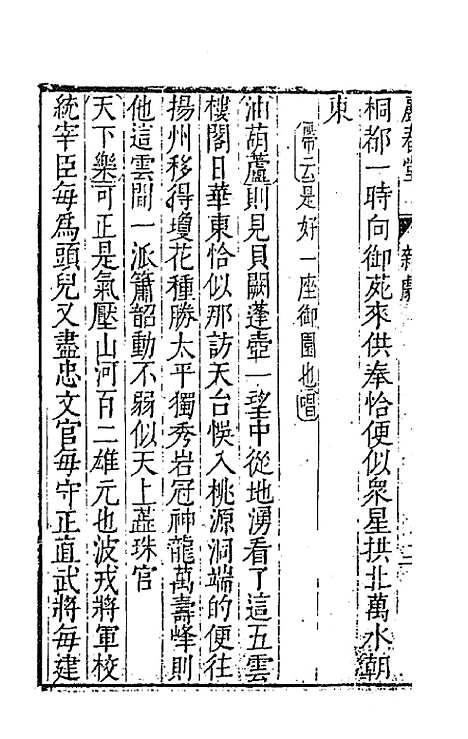 麗春堂 新劇
桐都一時向御苑來供奉恰便似衆星拱北萬水朝
東
帶云是好一座御園也唱
油葫蘆則見貝闕蓬壺一望中從地湧看了這五雲
樓閣日華東恰似那訪天台悞入桃源洞端的便往
揚州移得瓊花種勝太平獨秀岩冠神龍萬壽峰則
他這雲間一派簫韶動不弱似天上蕊珠宮
天下樂可正是氣壓山河百二雄元也波戎將軍校
統宰臣每爲頭兒又盡忠文官每守正直武將每建